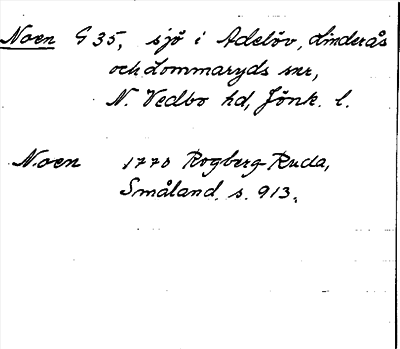 Noen G 35, sjö i Adelöv, Linderås
och Lommaryds snr,
N. Vedbo hd, Jönk. l.
Noen 1770 Rogberg-Ruda,
Småland, s. 913.